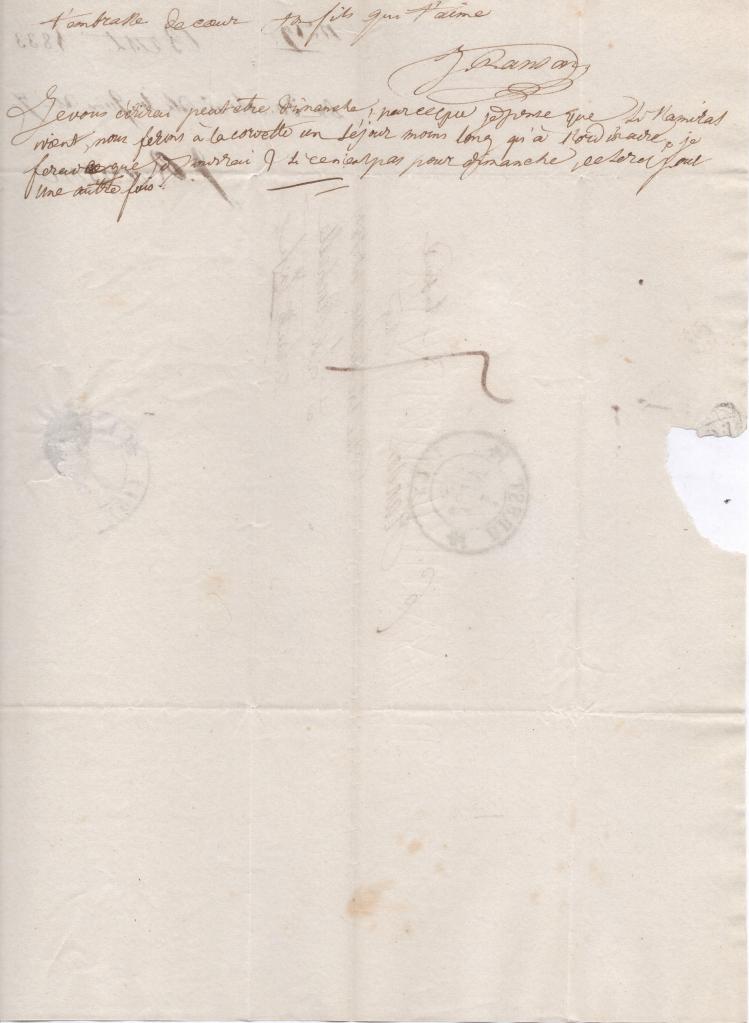 t'embrasse de cœur ton fils qui t'aime
J. Ranson
Je vous écrirai peut être dimanche, parceque je pense que si l'amiral
vient, nous ferons à la corvette un séjour moins long qu'à l'ordinaire, je
ferai ce que je pourrai & si ce n'est pas pour dimanche, ce sera pour
une autre fois.
BREST